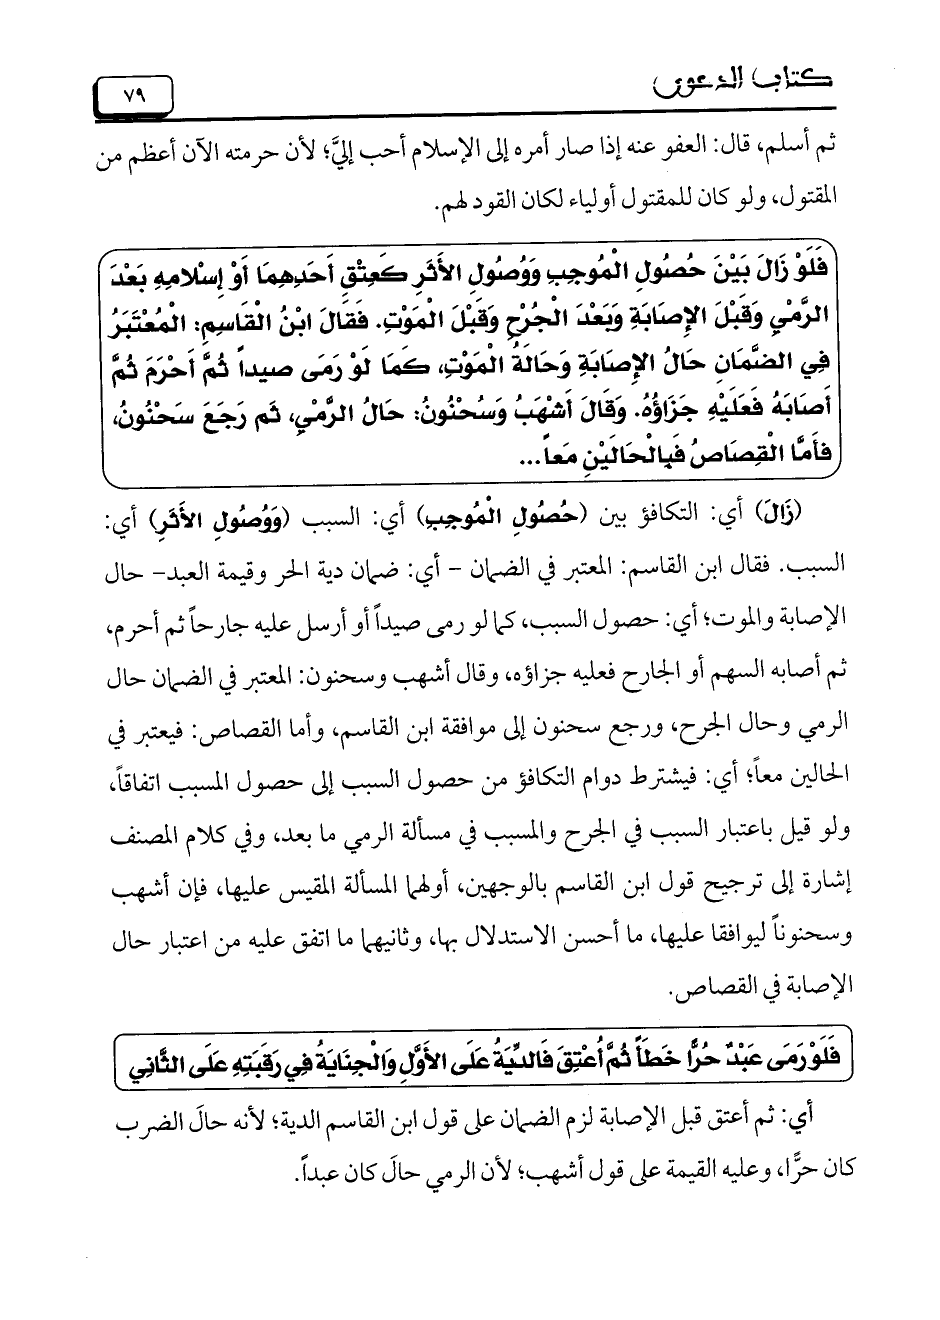 كتاب الدعوى
٧٩
ثم أسلم، قال: العفو عنه إذا صار أمره إلى الإسلام أحب إليَّ؛ لأن حرمته الآن أعظم من
المقتول، ولو كان للمقتول أولياء لكان القود لهم.
فَلَوْ زَالَ بَيْنَ حُصُولِ الْمُوجِبِ وَوُصُولِ الأَثَرِ كَعِتْقِ أَحَدِهِمَا أَوْ إِسْلامِهِ بَعْدَ
الرَّمْيِ وَقَبْلَ الإِصَابَةِ وَبَعْدَ الْجُرْحِ وَقَبْلَ الْمَوْتِ. فَقَالَ ابْنُ الْقَاسِمِ: الْمُعْتَبَرُ
فِي الضَّمَانِ حَالُ الإِصَابَةِ وَحَالَةُ الْمَوْتِ، كَمَا لَوْ رَمَى صيداً ثُمَّ أَحْرَمَ ثُمَّ
أَصَابَهُ فَعَلَيْهِ جَزَاؤُهُ. وَقَالَ أَشْهَبُ وَسُحْنُونُ: حَالُ الرَّمْيِ، ثم رَجَعَ سَحْنُونُ،
فَأَمَّا الْقِصَاصُ فَبِالْحَالَيْنِ مَعاً...
(زَالَ) أي: التكافؤ بين (حُصُولِ الْمُوجبِ) أي: السبب (وَوُصُولِ الأَثَرِ) أي:
السبب. فقال ابن القاسم: المعتبر في الضمان – أي: ضمان دية الحر وقيمة العبد– حال
الإصابة والموت؛ أي: حصول السبب، كما لو رمى صيداً أو أرسل عليه جارحاً ثم أحرم،
ثم أصابه السهم أو الجارح فعليه جزاؤه، وقال أشهب وسحنون: المعتبر في الضمان حال
الرمي وحال الجرح، ورجع سحنون إلى موافقة ابن القاسم، وأما القصاص: فيعتبر في
الحالين معاً؛ أي: فيشترط دوام التكافؤ من حصول السبب إلى حصول المسبب اتفاقاً،
ولو قيل باعتبار السبب في الجرح والمسبب في مسألة الرمي ما بعد، وفي كلام المصنف
إشارة إلى ترجيح قول ابن القاسم بالوجهين، أولهما المسألة المقيس عليها، فإن أشهب
وسحنوناً ليوافقا عليها، ما أحسن الاستدلال بها، وثانيهما ما اتفق عليه من اعتبار حال
الإصابة في القصاص.
فَلَوْ رَمَى عَبْدٌ حُرًّا خَطَأً ثُمَّ أُعْتِقَ فَالدِّيَةُ عَلَى الأَوَّلِ وَالْجِنَايَةُ فِي رَقَبَتِهِ عَلَى الثَّانِي
أي: ثم أعتق قبل الإصابة لزم الضمان على قول ابن القاسم الدية؛ لأنه حالَ الضرب
كان حرًّا، وعليه القيمة على قول أشهب؛ لأن الرمي حالَ كان عبداً.